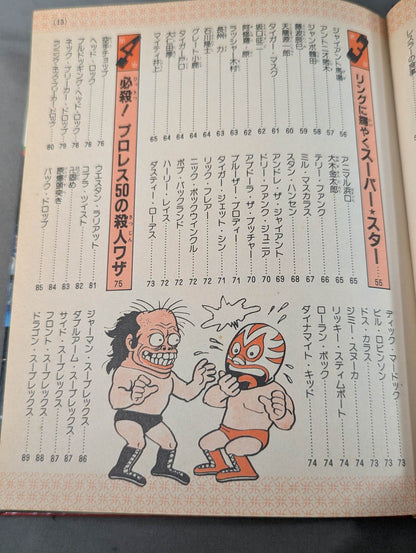 (13)
3章 リングに輝やくスーパー★スター……55
ジャイアント馬場……56
アントニオ猪木……57
ジャンボ鶴田……58
藤波辰巳……59
天龍源一郎……60
タイガー・マスク……61
坂口征二……62
阿修羅・原……62
ラッシャー木村……63
長州 力……63
石川隆士……64
グレート小鹿……64
タイガー戸口……64
大仁田厚……65
マイティ井上……65
アニマル浜口……65
大木金太郎……65
テリー・ファンク……66
ミル・マスカラス……67
スタン・ハンセン……68
アンドレ・ザ・ジャイアント……69
ドリー・ファンク・ジュニア……70
アブドーラ・ザ・ブッチャー……70
ブルーザー・ブロディー……71
タイガー・ジェット・シン……71
リック・フレアー……71
ニック・ボックウィンクル……72
ボブ・バックランド……72
ハーリー・レイス……72
ダスティー・ローデス……73
ディック・マードック……73
ビル・ロビンソン……73
ドス・カラス……73
ジミー・スヌーカ……74
リッキー・スティムボート……74
ローラン・ボック……74
ダイナマイト・キッド……74
4章 必殺!プロレス50の殺人ワザ……75
ひっさつ
さつじん
空手チョップ……76
ヘッド・ロック……76
ブルドッキング・ヘッド・ロック……78
ネック・ブリーカー・ドロップ……79
ランニング・ネックブリーカー・ドロップ……80
ウエスタン・ラリアット……81
コブラ・ツイスト……82
卍固め……83
原爆頭突き……84
バック・ドロップ……85
ジャーマン・スープレックス……86
ダブルアーム・スープレックス……87
サイド・スープレックス……87
フロント・スープレックス……88
ドラゴン・スープレックス……89